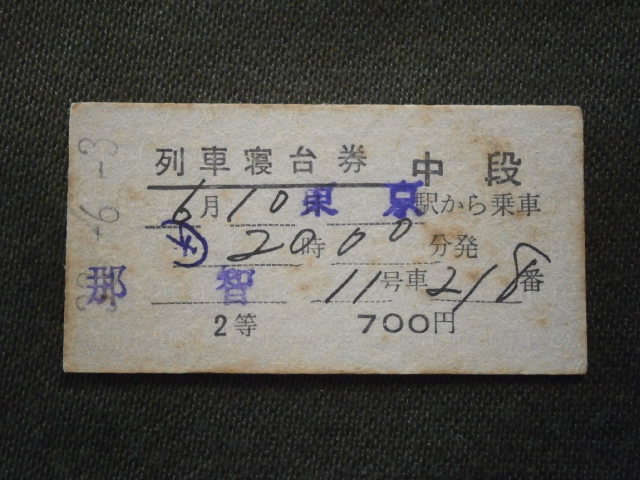 列車寝台券 中段
6月10 東京 駅から乗車
2000 時 分発
那智 11号車 218番
2等 700円
6.-3